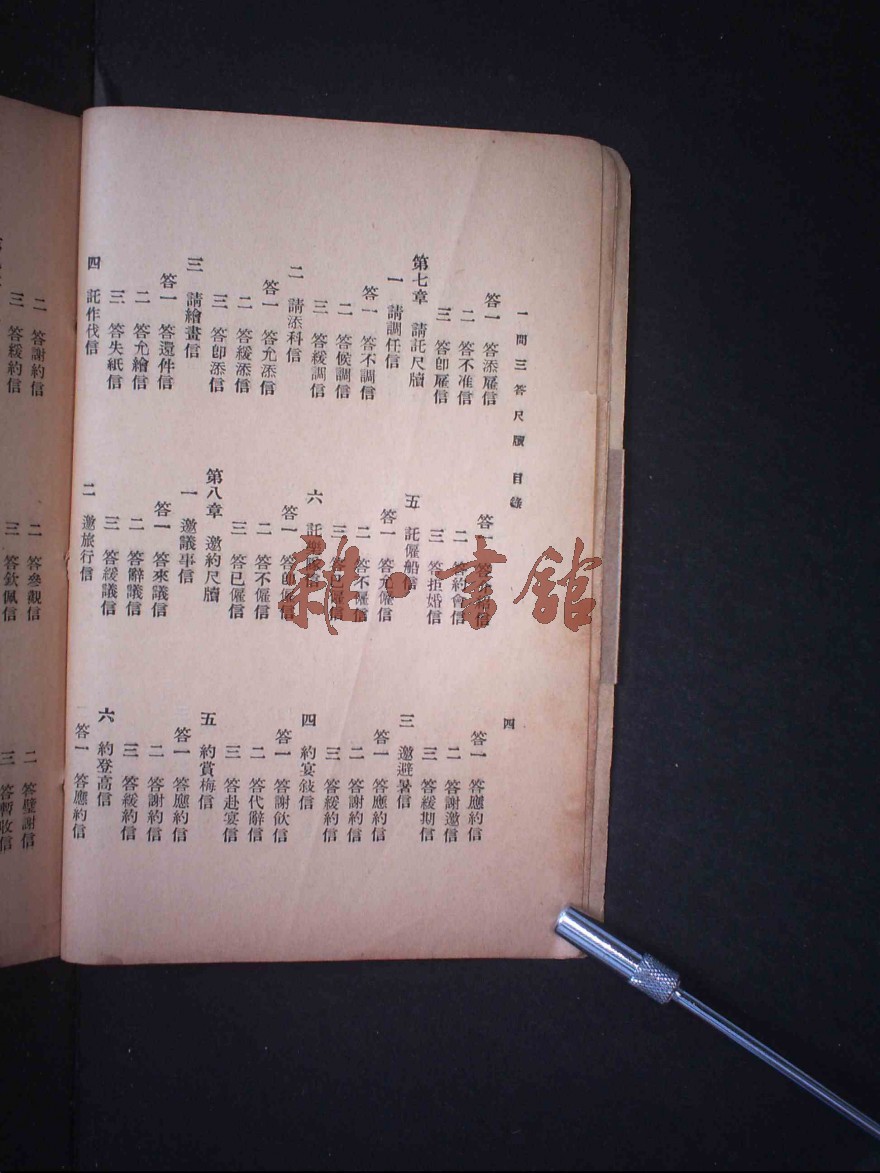 一問三答尺牘 目錄
四
答一 答添雇信
二 答不准信
三 答卽雇信
第七章 請託尺牘
一 請調任信
答一 答不調信
二 答候調信
三 答緩調信
二 請添科信
答一 答允添信
二 答緩添信
三 答卽添信
三 請繪畫信
答一 答還件信
二 答允繪信
三 答失紙信
四 託作伐信
二 答約會信
三 答拒婚信
五 託僱船信
答一 答允僱信
二 答不僱信
三 答已僱信
六
答一 答卽僱信
二 答不僱信
三 答已僱信
第八章 邀約尺牘
一 邀議事信
答一 答來議信
二 答辭議信
三 答緩議信
二 邀旅行信
答一 答應約信
二 答謝邀信
三 答緩期信
三 邀避暑信
答一 答應約信
二 答謝約信
三 答緩約信
四 約宴敍信
答一 答謝飲信
二 答代辭信
三 答赴宴信
五 約賞梅信
答一 答應約信
二 答謝約信
三 答緩約信
六 約登高信
答一 答應約信
二 答謝約信
三 答緩約信
二 答參觀信
三 答欽佩信
二 答璧謝信
三 答暫收信
雜·書館